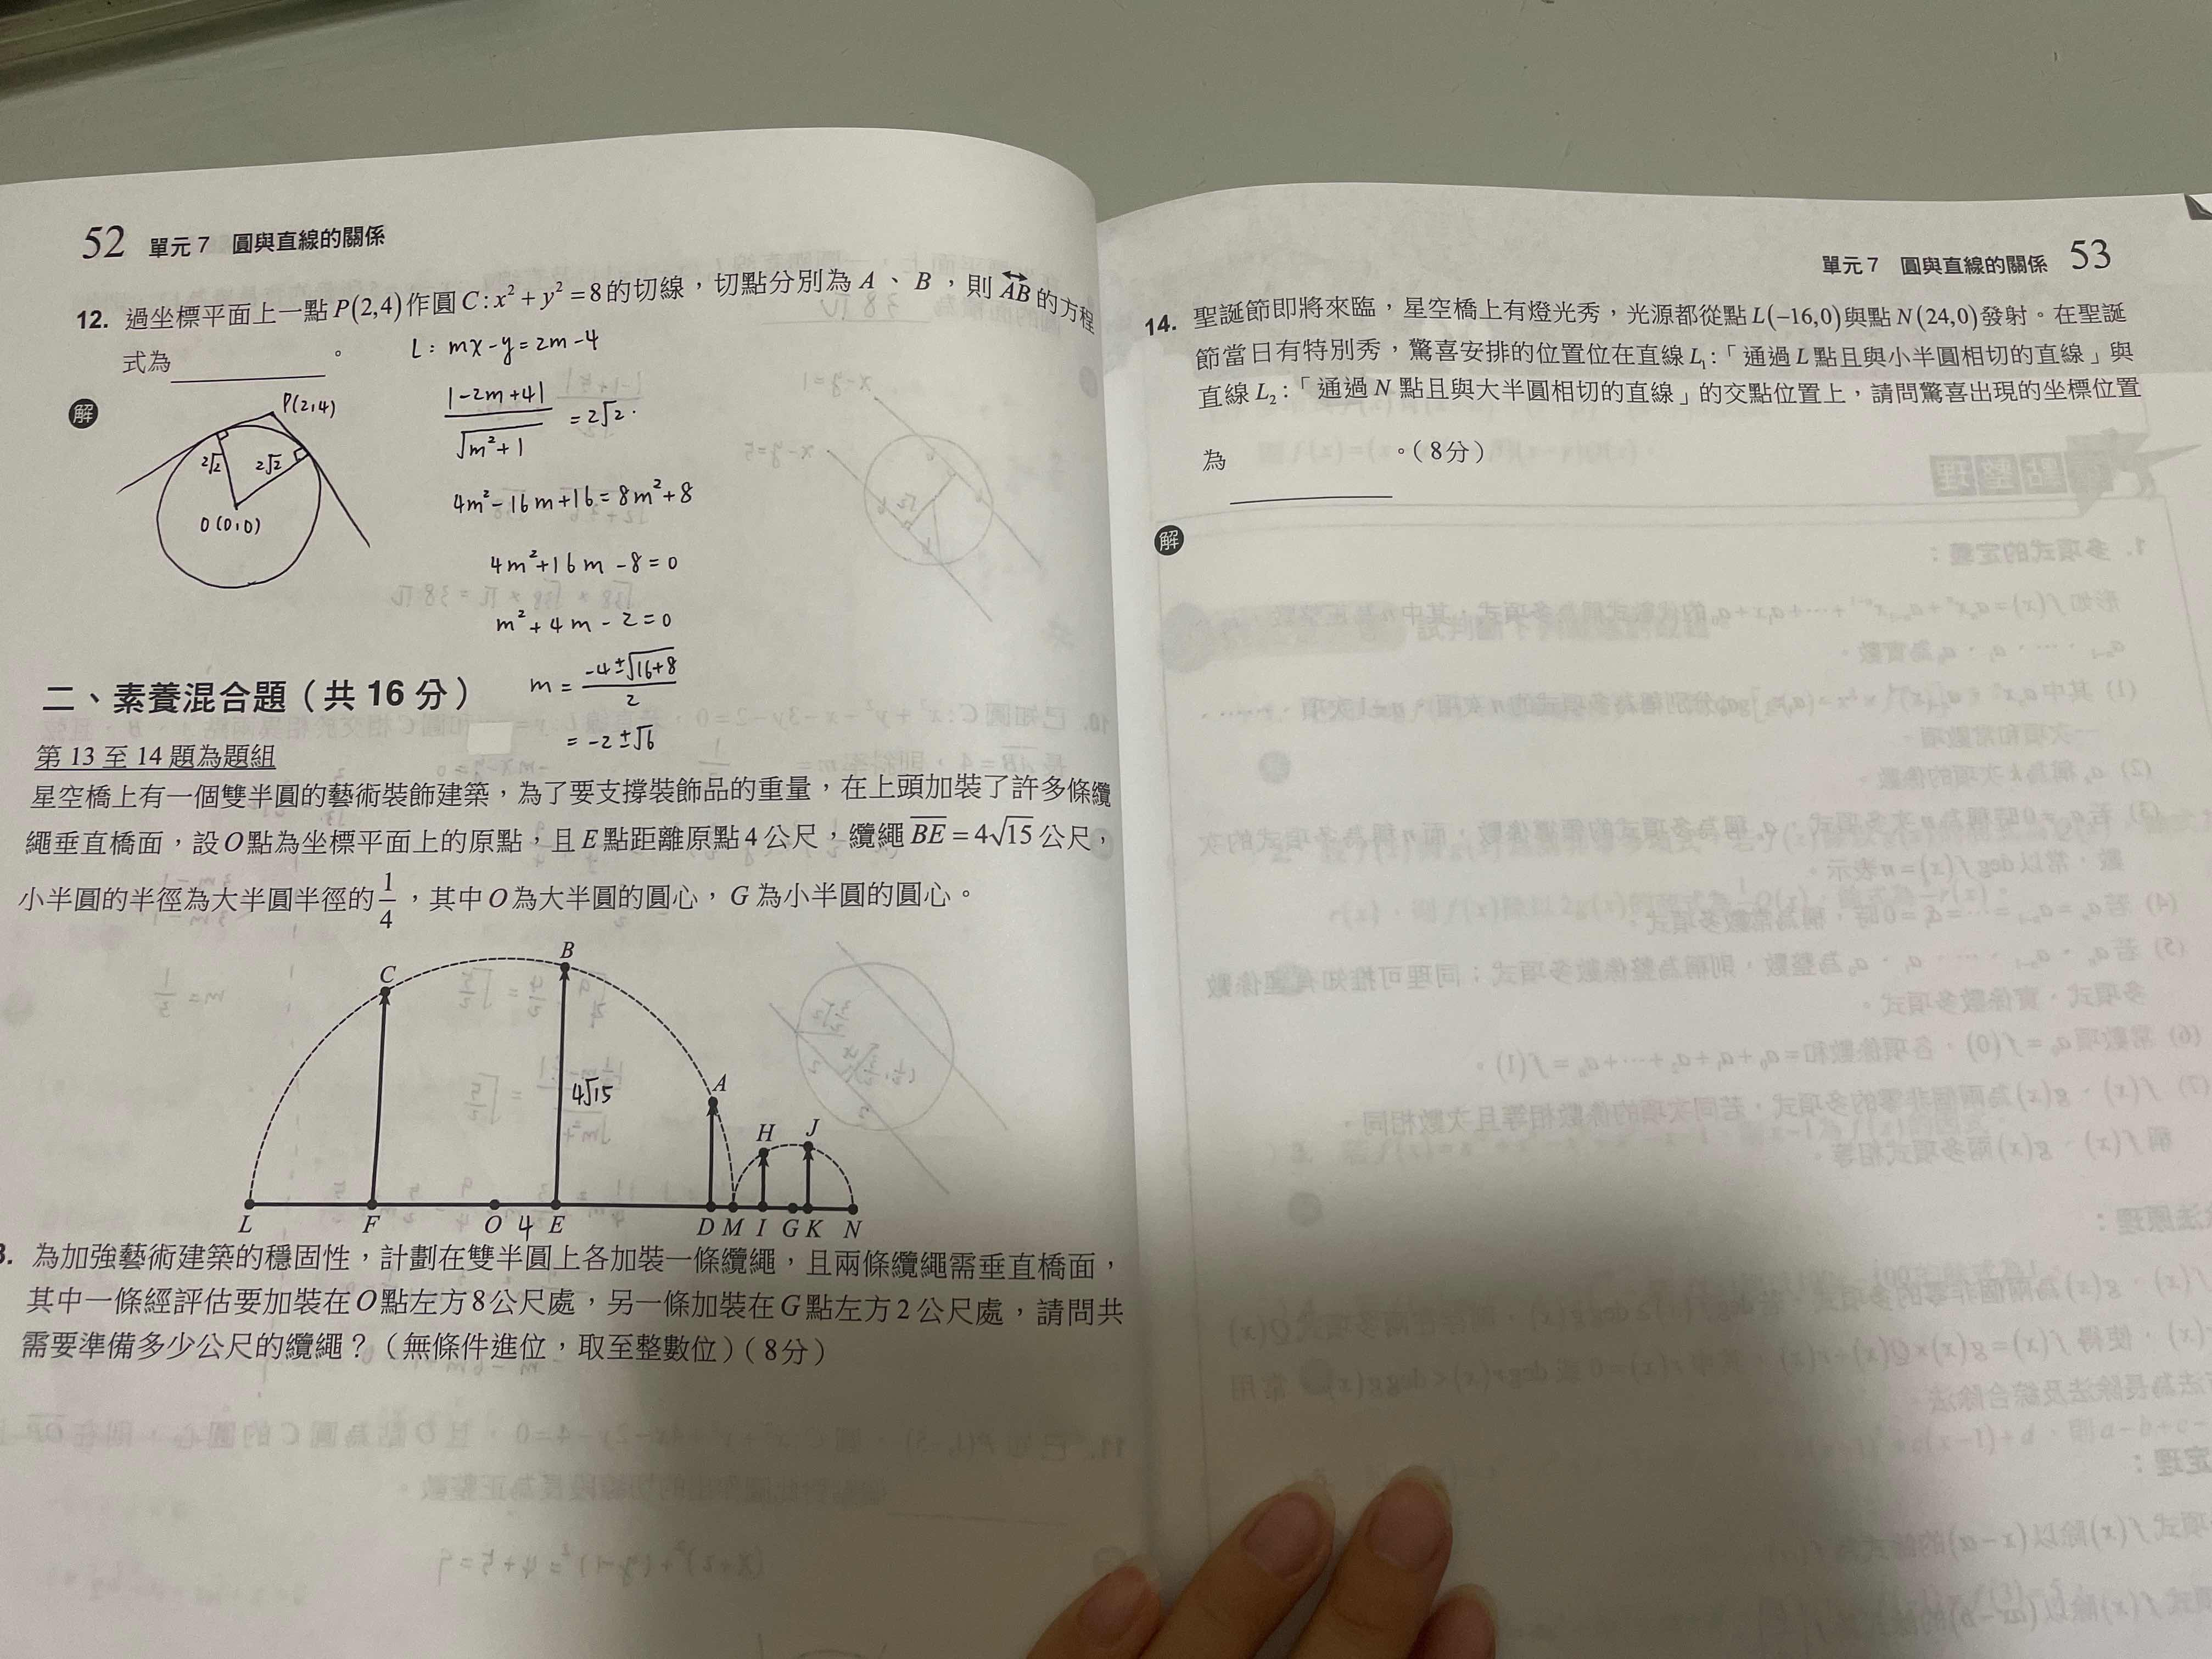 52 單元 7 圓與直線的關係
12. 過坐標平面上一點P(2,4)作圓C:x²+y²=8的切線，切點分別為A、B，則AB的方程
式為________。
L: mx-y=2m-4
解
P(2,4)
|-2m+4|/√m²+1 = 2√2
2√2 2√2
O(0,0)
4m²-16m+16=8m²+8
4m²+16m-8=0
m²+4m-2=0
m = -4±√16+8/2
= -2±√6
二、素養混合題（共 16 分）
第 13 至 14 題為題組
星空橋上有一個雙半圓的藝術裝飾建築，為了要支撐裝飾品的重量，在上頭加裝了許多條纜
繩垂直橋面，設O點為坐標平面上的原點，且E點距離原點4公尺，纜繩BE=4√15公尺，
小半圓的半徑為大半圓半徑的1/4，其中O為大半圓的圓心，G為小半圓的圓心。
C B
4√15
A
H J
L F O 4 E D M I G K N
3. 為加強藝術建築的穩固性，計劃在雙半圓上各加裝一條纜繩，且兩條纜繩需垂直橋面，
其中一條經評估要加裝在O點左方8公尺處，另一條加裝在G點左方2公尺處，請問共
需要準備多少公尺的纜繩？（無條件進位，取至整數位）（8分）
單元 7 圓與直線的關係 53
14. 聖誕節即將來臨，星空橋上有燈光秀，光源都從點L(−16,0)與點N(24,0)發射。在聖誕
節當日有特別秀，驚喜安排的位置位在直線L₁:「通過L點且與小半圓相切的直線」與
直線L₂:「通過N點且與大半圓相切的直線」的交點位置上，請問驚喜出現的坐標位置
為________。（8分）
解